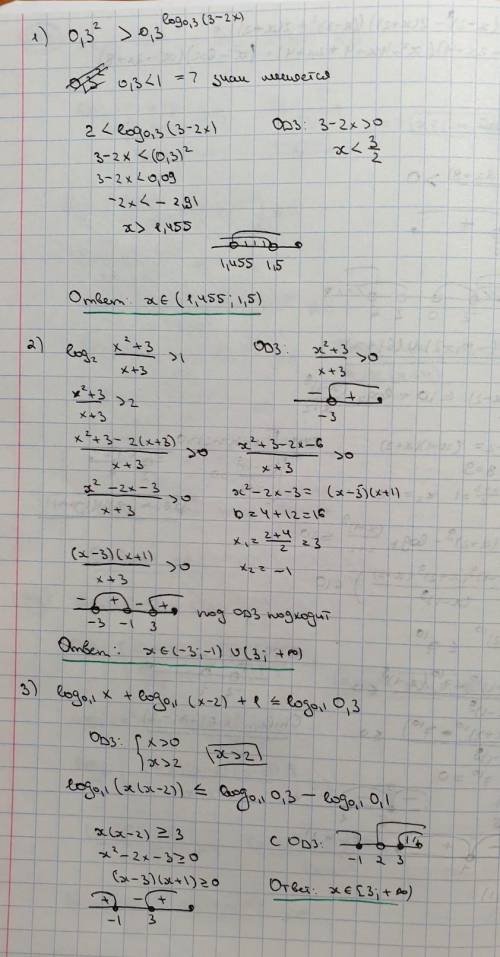 1) 0,3² > 0,3^(log₀,₃(3-2x))
0,3<1 => знак меняется
2 < log₀,₃(3-2x) ОДЗ: 3-2x>0
3-2x<(0,3)² x < 3/2
3-2x<0,09
-2x<-2,91
x>1,455
1,455 1,5
Ответ: x∈(1,455; 1,5)
2) log₂ (x²+3)/(x+3) >1 ОДЗ: (x²+3)/(x+3) >0
(x²+3)/(x+3) >2 - + -3
(x²+3-2(x+3))/(x+3) >0 (x²+3-2x-6)/(x+3) >0
(x²-2x-3)/(x+3) >0 x²-2x-3= (x-3)(x+1)
D=4+12=16
x₁=(2+4)/2=3
((x-3)(x+1))/(x+3) >0 x₂=-1
- + - + под ОДЗ подходит
-3 -1 3
Ответ: x∈(-3;-1) ∪(3; +∞)
3) log₀,₁ x + log₀,₁ (x-2) + 1 ≤ log₀,₁ 0,3
ОДЗ: { x>0 x>2 x>2
log₀,₁(x(x-2)) ≤ log₀,₁ 0,3 - log₀,₁ 0,1
x(x-2) ≥ 3 С ОДЗ:
x²-2x-3≥0 -1 2 3
(x-3)(x+1)≥0
+ - + Ответ: x∈[3; +∞)
-1 3